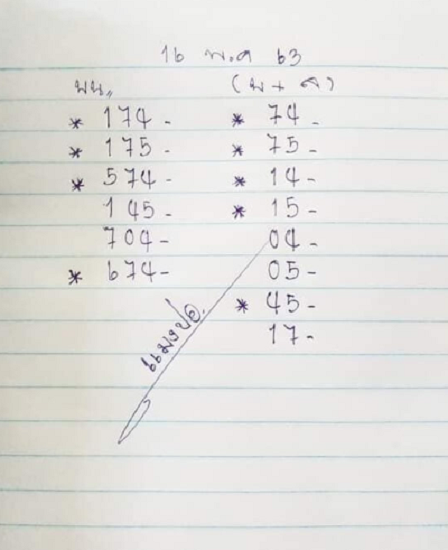 16 พ.ค 63
บน,, (บ + ล)
* 174 - * 74 -
* 175 - * 75 -
* 574 - * 14 -
145 - * 15 -
704 - 04 -
* 674 - 05 -
* 45 -
17 -